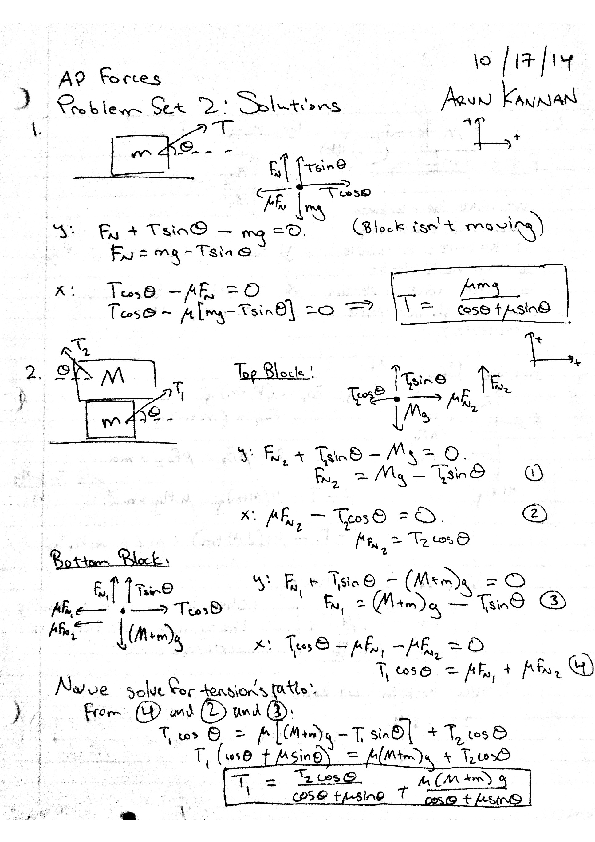 10/17/14
AP Forces
Problem Set 2: Solutions
ARUN KANNAN
1.
T
m
θ
+
+
F_N
Tsinθ
μF_N
Tcosθ
mg
y: F_N + Tsinθ - mg = 0. (Block isn't moving)
F_N = mg - Tsinθ
x: Tcosθ - μF_N = 0
Tcosθ - μ[mg - Tsinθ] = 0 ⟹ T = μmg / (cosθ + μsinθ)
2.
T_2
θ
M
T_1
m
θ
+
+
Top Block:
T_2sinθ
T_2cosθ
μF_N2
F_N2
Mg
y: F_N2 + T_2sinθ - Mg = 0.
F_N2 = Mg - T_2sinθ ①
x: μF_N2 - T_2cosθ = 0. ②
μF_N2 = T_2cosθ
Bottom Block:
F_N1
T_1sinθ
μF_N1
μF_N2
Tcosθ
(M+m)g
y: F_N1 + T_1sinθ - (M+m)g = 0
F_N1 = (M+m)g - T_1sinθ ③
x: T_1cosθ - μF_N1 - μF_N2 = 0
T_1cosθ = μF_N1 + μF_N2 ④
solve for tension's ratio:
From ④ and ② and ③:
T_1 cosθ = μ[(M+m)g - T_1 sinθ] + T_2 cosθ
T_1 (cosθ + μsinθ) = μ(M+m)g + T_2cosθ
T_1 = T_2cosθ / (cosθ + μsinθ) + μ(M+m)g / (cosθ + μsinθ)